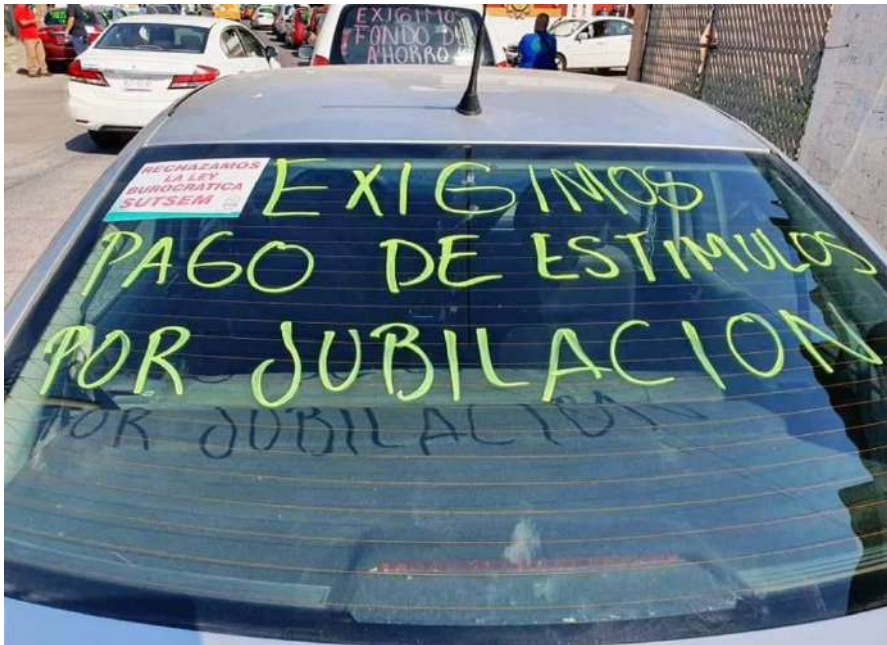 EXIGIMOS
FONDO DE
AHORRO
RECHAZAMOS
LA LEY
BUROCRATICA
SUTSEM
EXIGIMOS
PAGO DE ESTIMULOS
POR JUBILACION